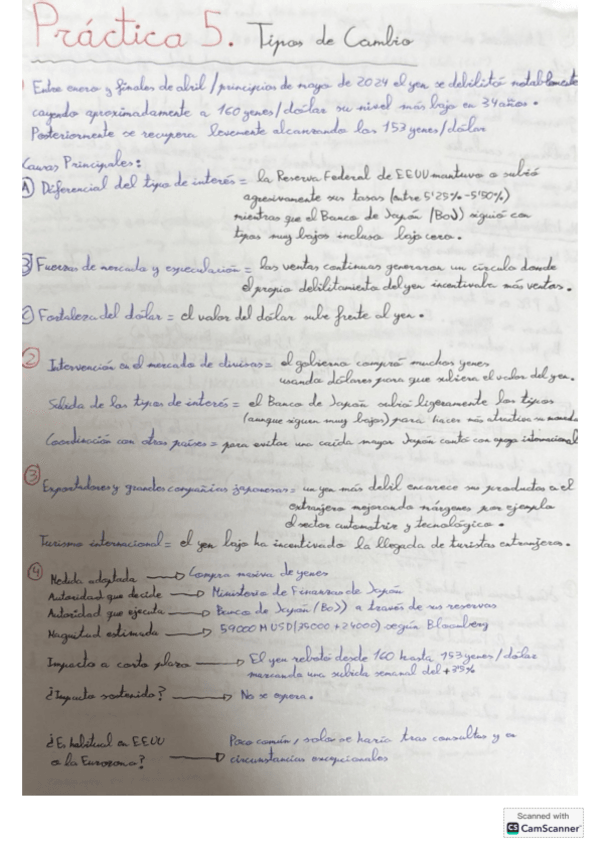 Práctica 5. Tipos de Cambio
Entre enero y finales de abril / principios de mayo de 2024 el yen se debilitó notablemente
cayendo aproximadamente a 160 yenes/dólar su nivel más bajo en 34 años.
Posteriormente se recupera levemente alcanzando los 153 yenes/dólar
Causas Principales:
A) Diferencial del tipo de interés = la Reserva Federal de EEUU mantuvo o subió
agresivamente sus tasas (entre 5'25%-5'50%)
mientras que el Banco de Japón (BoJ) siguió con
tipos muy bajos incluso bajo cero.
B) Fuerzas de mercado y especulación = las ventas continuas generaron un círculo donde
el propio debilitamiento del yen incentivaba más ventas.
C) Fortaleza del dólar = el valor del dólar sube frente al yen.
2 Intervención en el mercado de divisas = el gobierno compró muchos yenes
usando dólares para que subiera el valor del yen.
Subida de los tipos de interés = el Banco de Japón subió ligeramente los tipos
(aunque siguen muy bajos) para hacer más atractiva su moneda
Coordinación con otros países = para evitar una caída mayor Japón contó con apoyo internacional
3 Exportadores y grandes compañías japonesas = un yen más débil encarece sus productos en el
extranjero mejorando márgenes por ejemplo
el sector automotriz y tecnológico.
Turismo internacional = el yen bajo ha incentivado la llegada de turistas extranjeros.
4 Medida adoptada → Compra masiva de yenes
Autoridad que decide → Ministerio de Finanzas de Japón
Autoridad que ejecuta → Banco de Japón (BoJ) a través de sus reservas
Magnitud estimada → 59000 M USD (35000 + 24000) según Bloomberg
Impacto a corto plazo → El yen rebotó desde 160 hasta 153 yenes/dólar
marcando una subida semanal del +35%
¿Impacto sostenido? → No se espera.
¿Es habitual en EEUU → Poco común, solo se haría tras consultas y en
o la Eurozona? circunstancias excepcionales
Scanned with
CS CamScanner